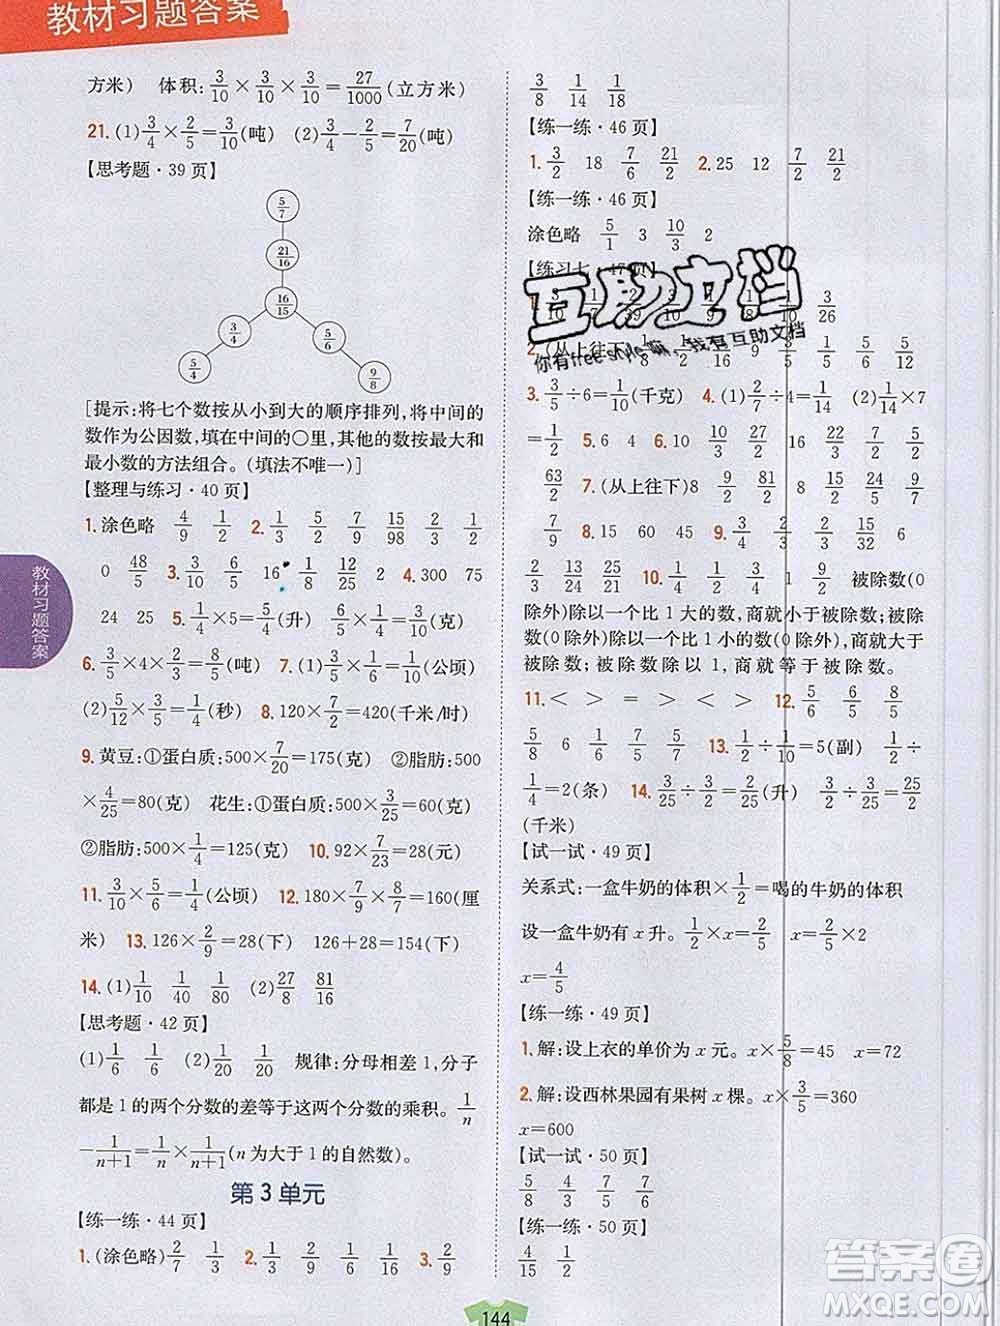 教材习题答案
方米) 体积: 3/10 × 3/10 × 3/10 = 27/1000 (立方米)
21. (1) 3/4 × 2/5 = 3/10 (吨) (2) 3/4 − 2/5 = 7/20 (吨)
【思考题·39 页】
5/7
21/16
16/15
3/4 5/6
2/5 9/8
[提示:将七个数按从小到大的顺序排列,将中间的
数作为公因数,填在中间的○里,其他的数按最大和
最小数的方法组合。(填法不唯一)]
【整理与练习·40 页】
1. 涂色略 4/9 1/2 2. 1/3 5/2 7/2 15/98 2/3 1/2
0 48/5 3. 3/5 3/5 16 1/8 12/25 2 4. 300 75
24 25 5. 1/4 × 5 = 5/4 (升) 1/4 × 3/5 = 3/4 (克)
6. 3/5 × 4 × 2/3 = 8/5 (吨) 7. (1) 1/4 × 3/5 = 1/6 (公顷)
(2) 5/12 × 3/5 = 1/4 (秒) 8. 120 × 7/2 = 420 (千米/时)
9. 黄豆:①蛋白质: 500 × 7/20 = 175 (克) ②脂肪: 500
× 4/25 = 80 (克) 花生:①蛋白质: 500 × 3/25 = 60 (克)
②脂肪: 500 × 1/4 = 125 (克) 10. 92 × 7/23 = 28 (元)
11. 3/10 × 5/3 × 1/2 = 1/4 (公顷) 12. 180 × 7/9 × 8/7 = 160 (厘
米) 13. 126 × 2/9 = 28 (下) 126 + 28 = 154 (下)
14. (1) 1/10 1/40 1/80 (2) 27/8 81/16
【思考题·42 页】
(1) 1/6 1/6 (2) 1/20 1/20 规律:分母相差 1,分子
都是 1 的两个分数的差等于这两个分数的乘积。 1/n
− 1/(n+1) = 1/n × 1/(n+1) (n 为大于 1 的自然数)。
第 3 单元
【练一练·44 页】
1. (涂色略) 2/7 1/3 2. 1/3 1/4 1/5 1/6 3. 2/9
教材习题答案
3/8 1/14 1/18
【练一练·46 页】
1. 3/2 18 7/6 21/2 2. 25 12 7/2 21/2
【练一练·46 页】
涂色略 5/1 3 10/3 2
【练习七·47 页】
3/26
2. (从上往下)
3. 3/5 ÷ 6 = 1/10 (千克) 4. (1) 2/7 ÷ 4 = 1/14 (2) 1/14 × 7
= 1/2 5. 6 4 6. 10/3 21/2 27/2 16 22/3 24/5 9/7
63/2 7. (从上往下) 8 9/2 8/3 12/7 8 9/2 8/3 12/7
7/9 8. 15 60 45 9. 3/4 3/2 7/24 7/6 3/25 6
2/3 13/24 13/6 10. 1/4 1/2 1 9/2 被除数(0
除外)除以一个比 1 大的数,商就小于被除数;被除
数(0 除外)除以一个比 1 小的数(0 除外),商就大于
被除数;被除数除以 1,商就等于被除数。
11. < > = > < > 12. 5/6 6/5 8/5
5/8 6 1/6 7/5 5/7 13. 1/2 ÷ 1/10 = 5 (副) 1/2 ÷
1/4 = 2 (条) 14. 3/25 ÷ 3/2 = 2/25 (升) 3/2 ÷ 3/25 = 25/2
(千米)
【试一试·49 页】
关系式:一盒牛奶的体积 × 1/2 = 喝的牛奶的体积
设一盒牛奶有 x 升。 1/2 x = 2/5 x = 2/5 × 2
x = 4/5
【练一练·49 页】
1. 解:设上衣的单价为 x 元。 x × 5/8 = 45 x = 72
2. 解:设西林果园有果树 x 棵。 x × 3/5 = 360
x = 600
【试一试·50 页】
5/8 4/3 2/5 3/4
【练一练·50 页】
4/15 1/2
互助文档
你有free style嘛,我有互助文档
144
答案圈
MXQE.COM